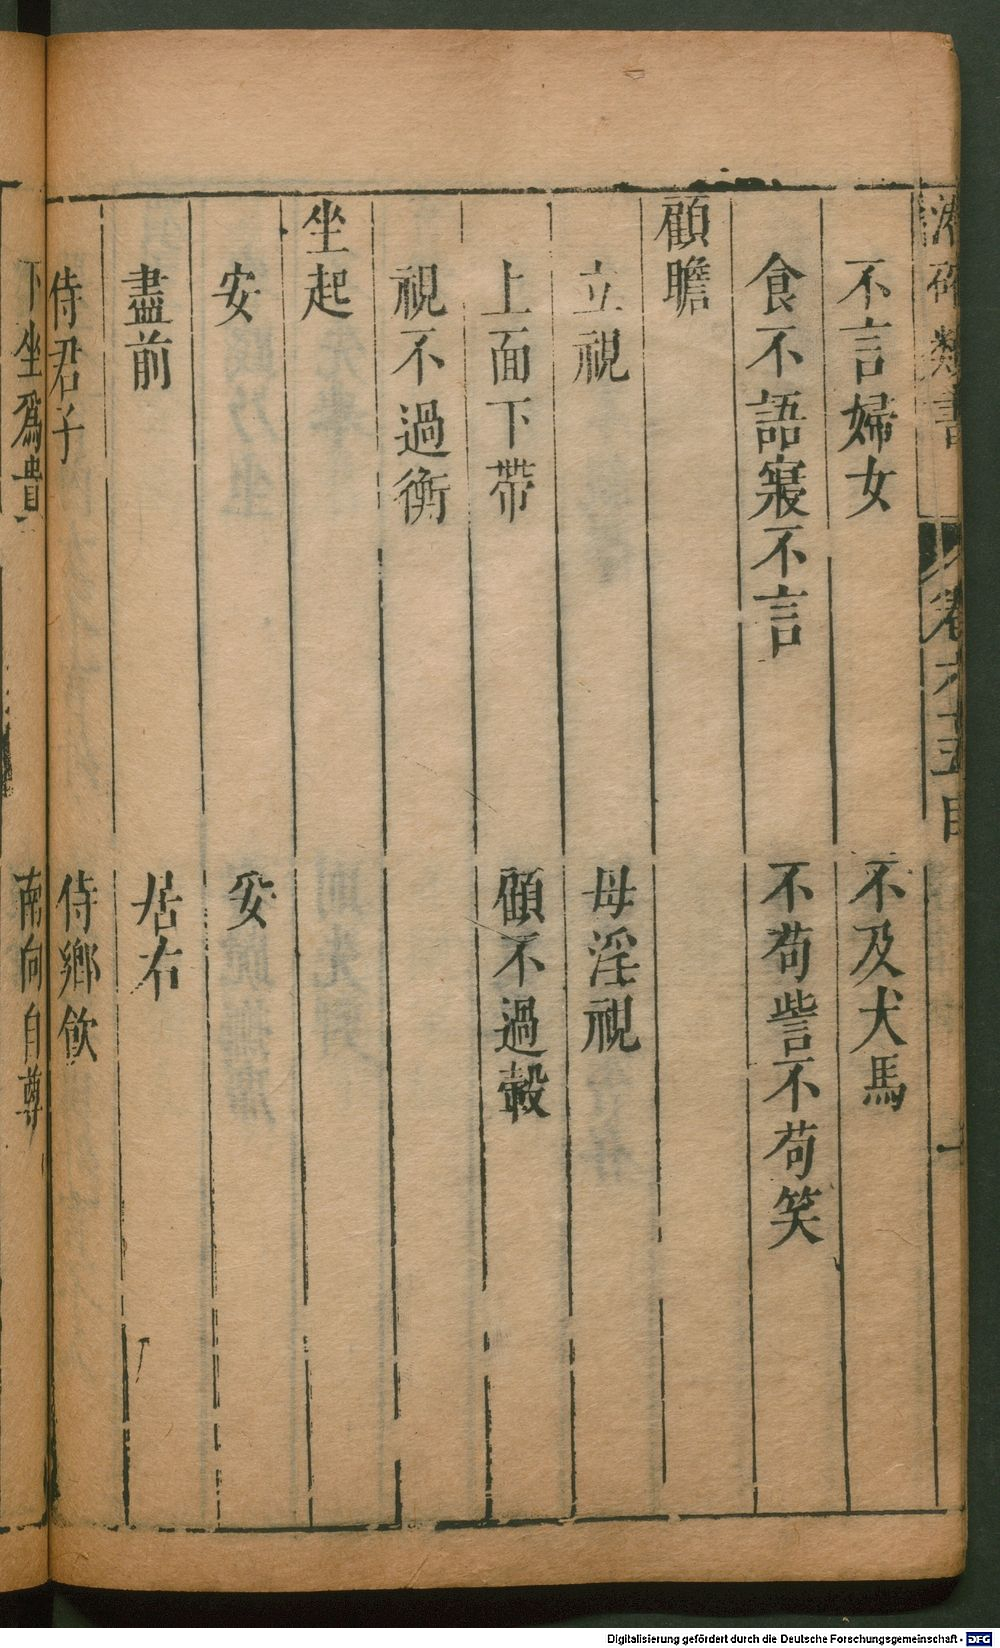 類書 卷六十五目
不言婦女 不及犬馬
食不語寢不言 不苟訾不苟笑
顧瞻
立視 毋淫視
上面下帶 顧不過轂
視不過衡
坐起
安 安
盡前 居右
侍君子 侍鄉飲
下坐爲貴 南向自尊
Digitalisierung gefördert durch die Deutsche Forschungsgemeinschaft - DFG